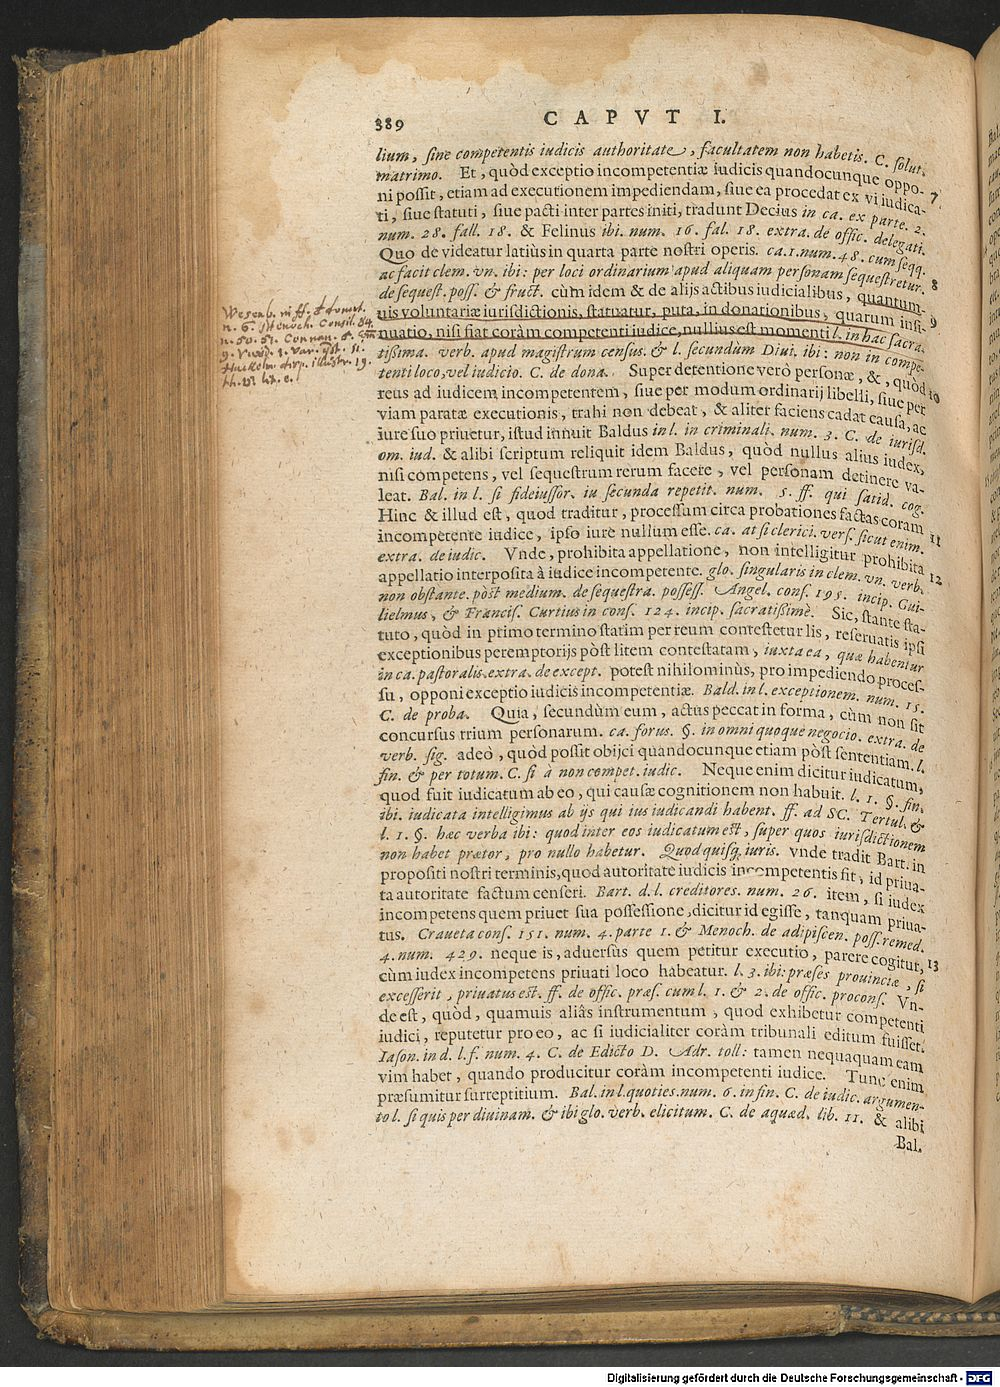 389 CAPVT I.
lium, sine competentis iudicis authoritate, facultatem non habetis. C. solut.
matrimo. Et, quòd exceptio incompetentiæ iudicis quandocunque oppo-
ni possit, etiam ad executionem impediendam, siue ea procedat ex vi iudica- 7
ti, siue statuti, siue pacti inter partes initi, tradunt Decius in ca. ex parte. 2.
num. 28. fall. 18. & Felinus ibi. num. 16. fal. 18. extra. de offic. delegati.
Quo de videatur latiùs in quarta parte nostri operis. ca. 1. num. 48. cum seqq.
ac facit clem. vn. ibi: per loci ordinarium apud aliquam personam sequestretur. 8
de sequest. poss. & fruct. cùm idem & de alijs actibus iudicialibus, quantum-
uis voluntariæ iurisdictionis, statuatur, puta, in donationibus, quarum insi- 9
nuatio, nisi fiat coràm competenti iudice, nullius est momenti l. in hac sacra-
tißima. verb. apud magistrum census. & l. secundùm Diui. ibi: non in compe-
tenti loco, vel iudicio. C. de dona. Super detentione verò personæ, &, quòd 10
reus ad iudicem incompetentem, siue per modum ordinarij libelli, siue per
viam paratæ executionis, trahi non debeat, & aliter faciens cadat causa, ac
iure suo priuetur, istud innuit Baldus in l. in criminali. num. 3. C. de iurisd.
om. iud. & alibi scriptum reliquit idem Baldus, quòd nullus alius iudex,
nisi competens, vel sequestrum rerum facere, vel personam detinere va-
leat. Bal. in l. si fideiussor. in secunda repetit. num. 5. ff. qui satid. cog.
Hinc & illud est, quod traditur, processum circa probationes factas coram
incompetente iudice, ipso iure nullum esse. ca. at si clerici. vers. sicut enim. 11
extra. de iudic. Vnde, prohibita appellatione, non intelligitur prohibita
appellatio interposita à iudice incompetente. glo. singularis in clem. vn. verb. 12
non obstante. pòst medium. de sequestra. possess. Angel. cons. 195. incip. Gui-
lielmus, & Francis. Curtius in cons. 124. incip. sacratißimè. Sic, stante sta-
tuto, quòd in primo termino statim per reum contestetur lis, reseruatis ipsi
exceptionibus peremptorijs pòst litem contestatam, iuxta ea, quæ habentur
in ca. pastoralis. extra. de except. potest nihilominùs, pro impediendo proces-
su, opponi exceptio iudicis incompetentiæ. Bald. in l. exceptionem. num. 15.
C. de proba. Quia, secundùm eum, actus peccat in forma, cùm non sit
concursus trium personarum. ca. forus. §. in omni quoque negocio. extra. de
verb. sig. adeò, quòd possit obijci quandocunque etiam pòst sententiam. l.
fin. & per totum. C. si à non compet. iudic. Neque enim dicitur iudicatum,
quod fuit iudicatum ab eo, qui causæ cognitionem non habuit. l. 1. §. fin.
ibi. iudicata intelligimus ab ijs qui ius iudicandi habent. ff. ad SC. Tertul. &
l. 1. §. hæc verba ibi: quod inter eos iudicatum est, super quos iurisdictionem
non habet prætor, pro nullo habetur. Quod quisq; iuris. vnde tradit Bart. in
propositi nostri terminis, quod autoritate iudicis incompetentis fit, id priua-
ta autoritate factum censeri. Bart. d. l. creditores. num. 26. item, si iudex
incompetens quem priuet sua possessione, dicitur id egisse, tanquam priua-
tus. Craueta cons. 151. num. 4. parte 1. & Menoch. de adipiscen. poss. remed.
4. num. 429. neque is, aduersus quem petitur executio, parere cogitur, 13
cùm iudex incompetens priuati loco habeatur. l. 3. ibi: præses prouinciæ, si
excesserit, priuatus est. ff. de offic. præs. cum l. 1. & 2. de offic. procons. Vn-
de est, quòd, quamuis aliâs instrumentum, quod exhibetur competenti
iudici, reputetur pro eo, ac si iudicialiter coràm tribunali editum fuisset.
Iason. in d. l. f. num. 4. C. de Edicto D. Adr. toll: tamen nequaquam eam
vim habet, quando producitur coràm incompetenti iudice. Tunc enim
præsumitur surreptitium. Bal. in l. quoties. num. 6. in fin. C. de iudic. argumen-
to l. si quis per diuinam. & ibi glo. verb. elicitum. C. de aquæd. lib. 11. & alibi
Bal.
Wesenb. in ff. d. donat.
n. 6. Menoch. Consil. 84.
n. 50. 51. Connan. 5.
19.
th. lit. e.
Digitalisierung gefördert durch die Deutsche Forschungsgemeinschaft - DFG